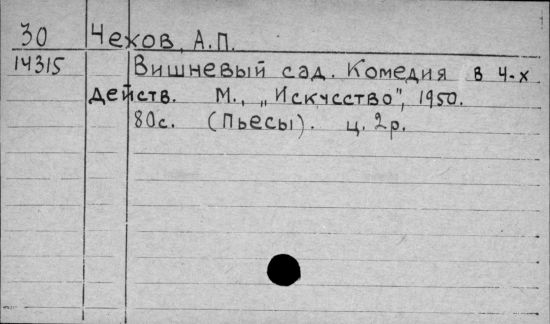 30 Чехов, А.П.
14315 Вишневый сад. Комедия в 4-х
действ. М., „Искусство", 1950.
80с. (Пьесы). ц. 2р.